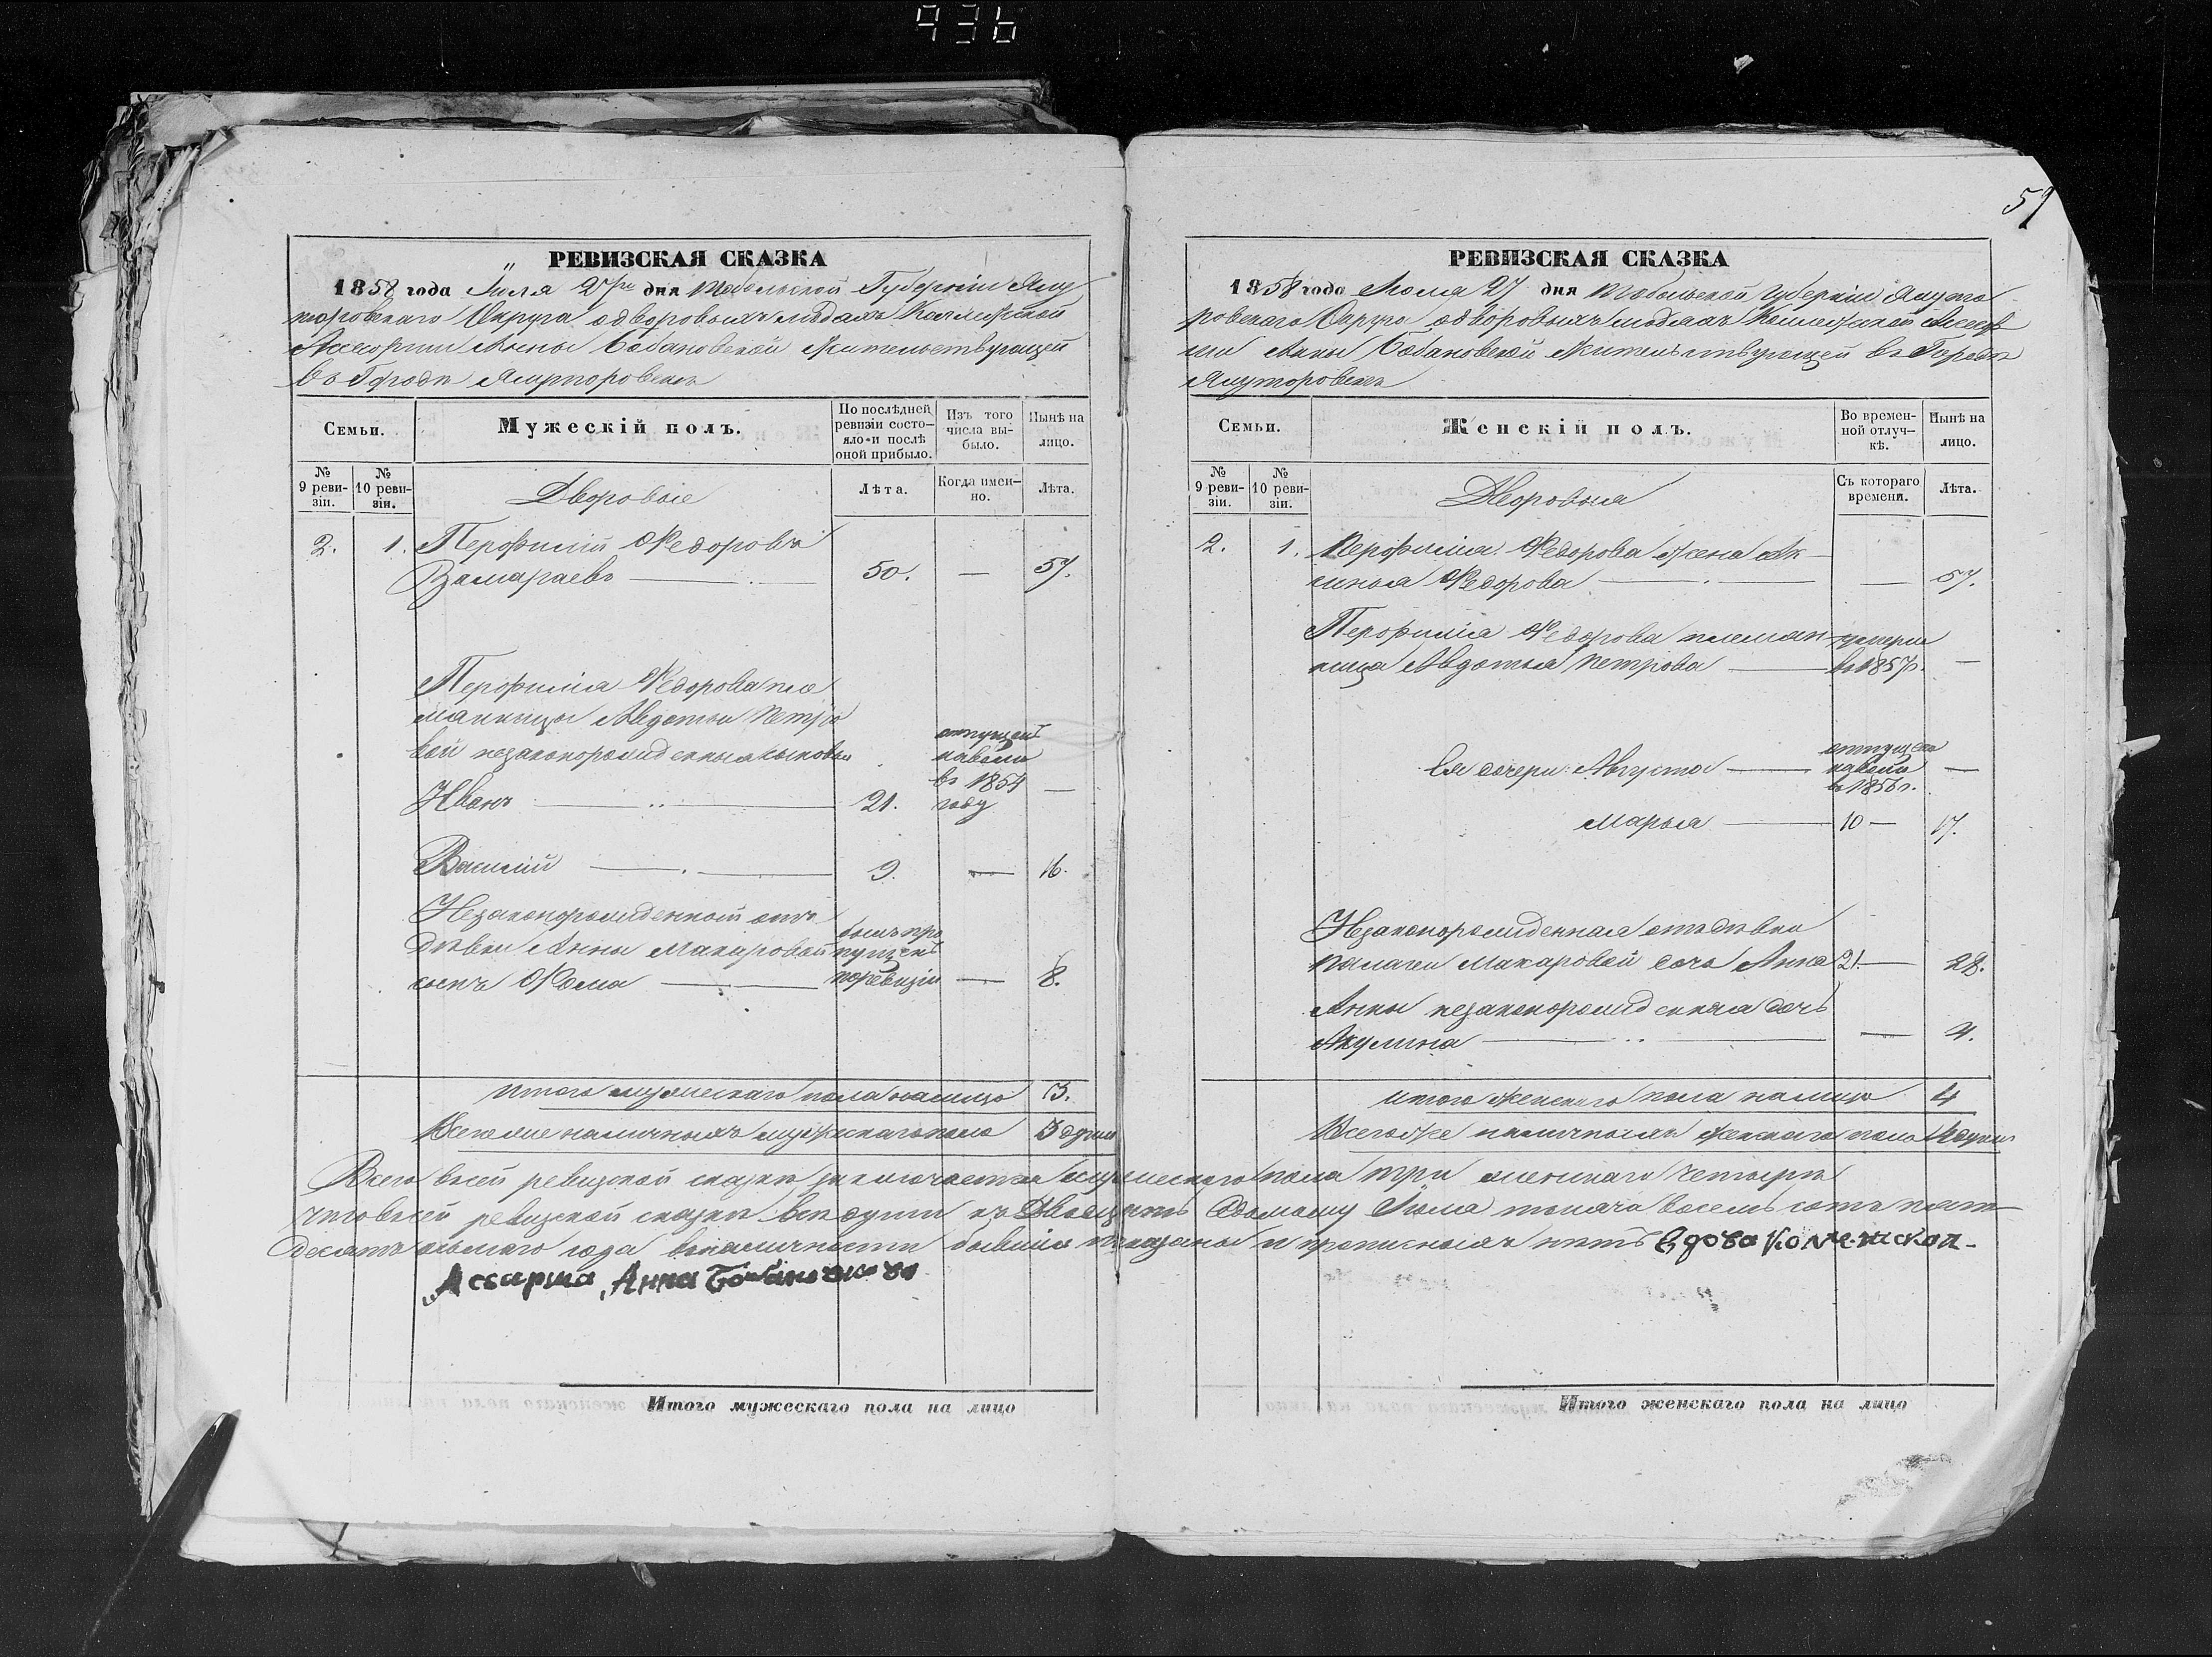 936
РЕВИЗСКАЯ СКАЗКА
1858 года Июля 27го дня Тобольской Губерніи Ялу
торовскаго Округа о дворовыхъ людяхъ Коллежской
Ассесорши Анны Бобановской Жительствующей
въ Городѣ Ялуторовскѣ
Семьи.
Мужескій полъ.
По послѣдней
ревизіи состо-
яло и послѣ
оной прибыло.
Изъ того
числа вы-
было.
Нынѣ на
лицо.
№
9 реви-
зіи.
№
10 реви-
зіи.
Дворовые
Лѣта.
Когда имен-
но.
Лѣта.
2. 1. Перфилій Федоровъ
Замараевъ 50. — 57.
Перфилія Федорова пле
манницы Авдотьи Петро
вой незаконорожденныя сыновья
Иванъ 21.
отпущенъ
на волю
въ 1854
году —
Василій 9. — 16.
Незаконорожденной отъ
дѣвки Анны Макаровой
сынъ Фома
былъ про
пущенъ
по ревизіи — 8.
Итого мужескаго пола налицо 3.
Всего же наличныхъ мужескаго пола 3 души
59
РЕВИЗСКАЯ СКАЗКА
1858 года Июля 27 дня Тобольской Губерніи Ялуто
ровскаго Округа о дворовыхъ людяхъ Коллежской Ассесор
ши Анны Бобановской Жительствующей въ Городѣ
Ялуторовскѣ
Семьи.
Женскій полъ.
Во времен-
ной отлуч-
кѣ.
Нынѣ на
лицо.
№
9 реви-
зіи.
№
10 реви-
зіи.
Дворовыя
Съ котораго
времени.
Лѣта.
2. 1. Перфилія Федорова Жена Ак-
линья Федорова — 57.
Перфилія Федорова племян-
ница Авдотья Петрова
умерла
въ 1857г. —
Ея дочери: Августа
отпущена
на волю
въ 1856г. —
Марья 10 — 17.
Незаконорожденная отъ дѣвки
Палагеи Макаровой дочь Анна 21. — 28.
Анны незаконорожденная дочь
Акулина — 4.
Итого женскаго пола налицо 4
Всего же наличныхъ женскаго пола 4 души
Всего в сей ревизской сказкѣ заключается мужескаго пола три женскаго четыре
что в сей ревизской сказкѣ всѣ души къ двадцать седьмому Июля тысяча восемь сотъ пять-
десятъ осьмаго года въ наличности бывшія показаны и прописныхъ нѣтъ Вдова Колежская
Ассарша Анна
Итого мужескаго пола на лицо
Итого женскаго пола на лицо